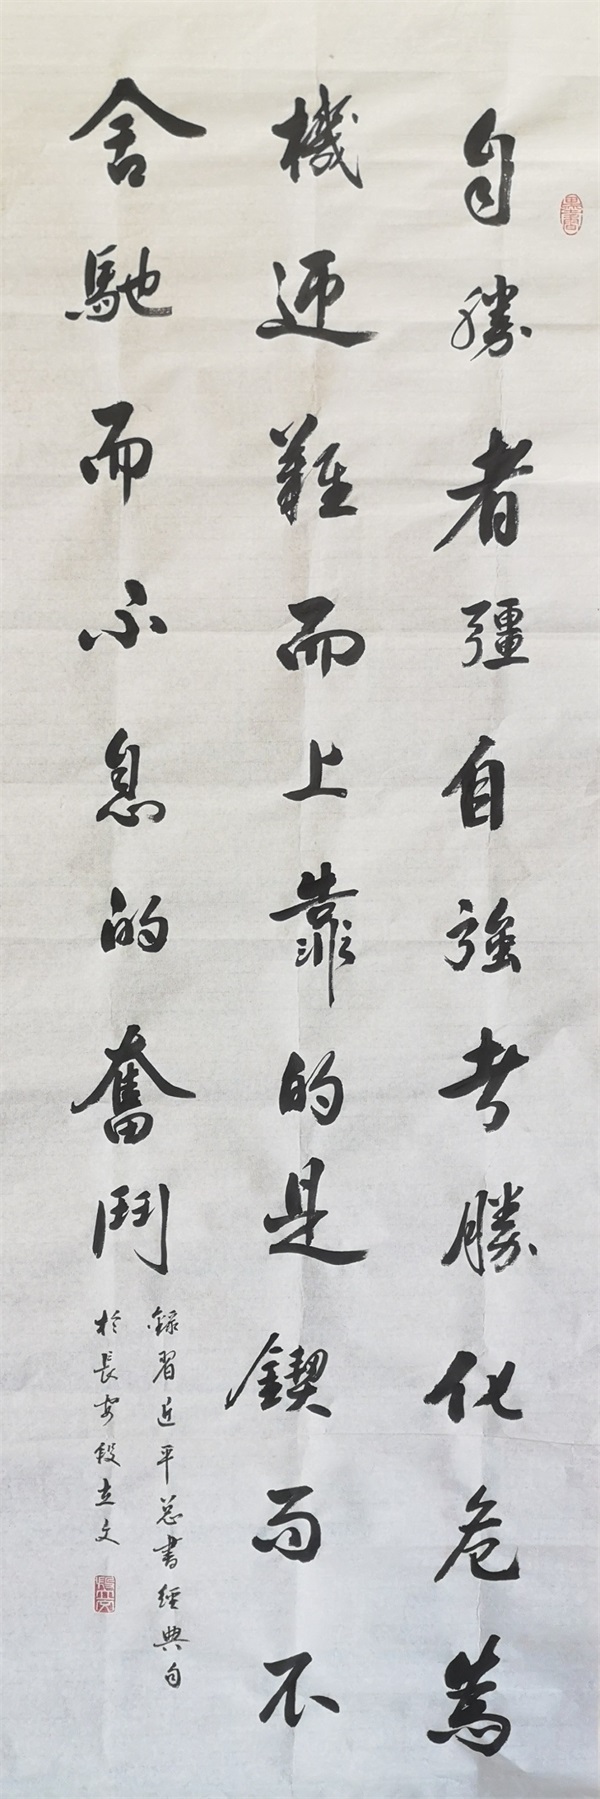 自勝者彊自強者勝化危為
機迎難而上靠的是鍥而不
舍馳而不息的奮鬥
錄習近平总書經典句
於長安段立文